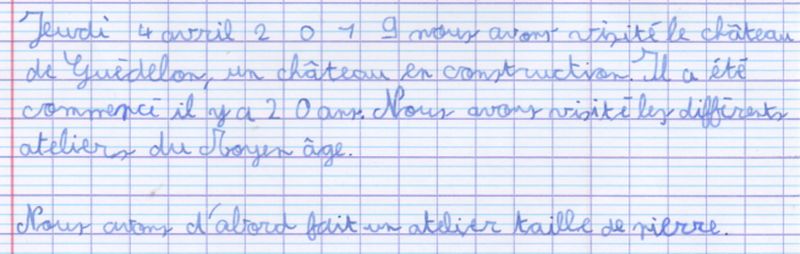 Jeudi 4 avril 2 0 1 9 nous avons visité le château
de Guédelon, un château en construction. Il a été
commencé il y a 2 0 ans. Nous avons visité les différents
ateliers du Moyen âge.
Nous avons d'abord fait un atelier taille de pierre.